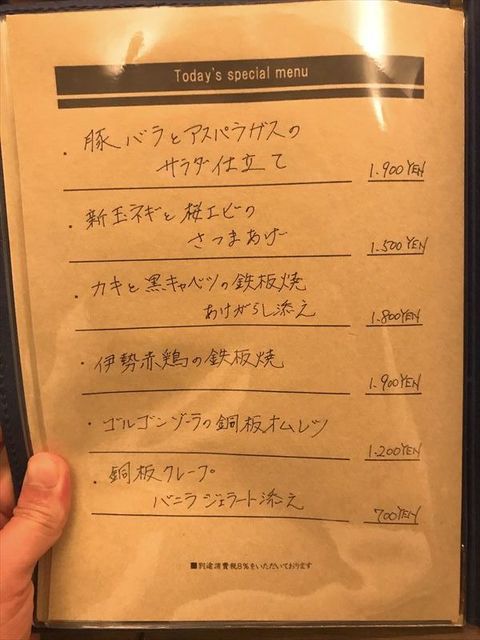 Today's special menu
・豚バラとアスパラガスの
サラダ仕立て 1.900YEN
・新玉ネギと桜エビの
さつまあげ 1.500YEN
・カキと黒キャベツの鉄板焼
あけがらし添え 1.800YEN
・伊勢赤鶏の鉄板焼 1.900YEN
・ゴルゴンゾーラの銅板オムレツ 1.200YEN
・銅板クレープ
バニラジェラート添え 700YEN
■別途消費税8%をいただいております